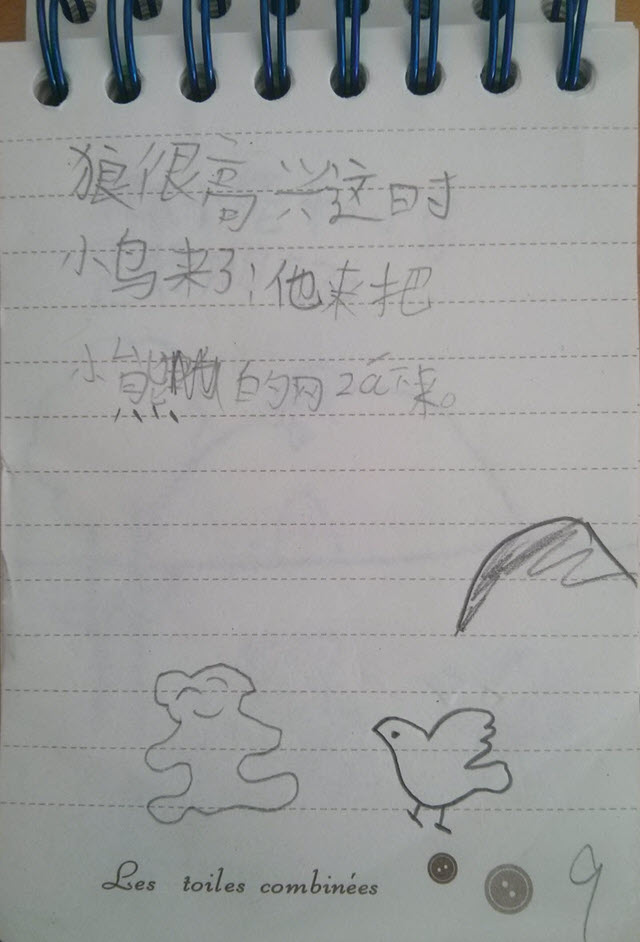 狼很高兴这时
小鸟来了!他来把
小熊的网 zá下来。
Les toiles combinées
9